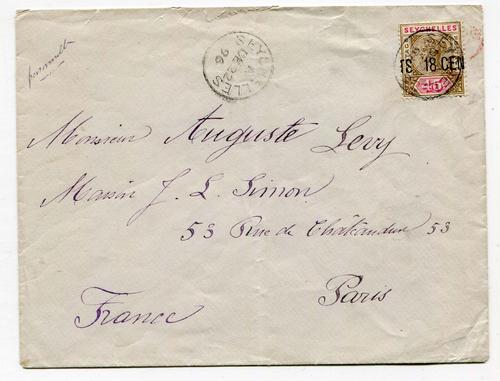 par malle
SEYCHELLES
A
DE 22
96
SEYCHELLES
18 CEN
45
Monsieur Auguste Levy
Maison J. L. Simon
53 Rue de Châteaudun 53
Paris
France